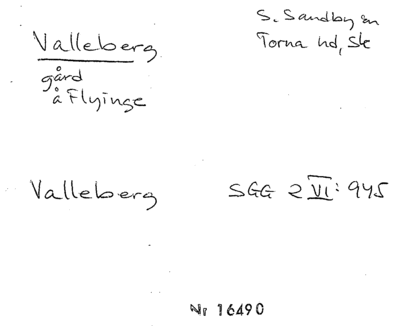 Valleberg
gård
å Flyinge
S. Sandby sn
Torna hd, Sk
Valleberg SGG 2 VI: 945
Nr 16490